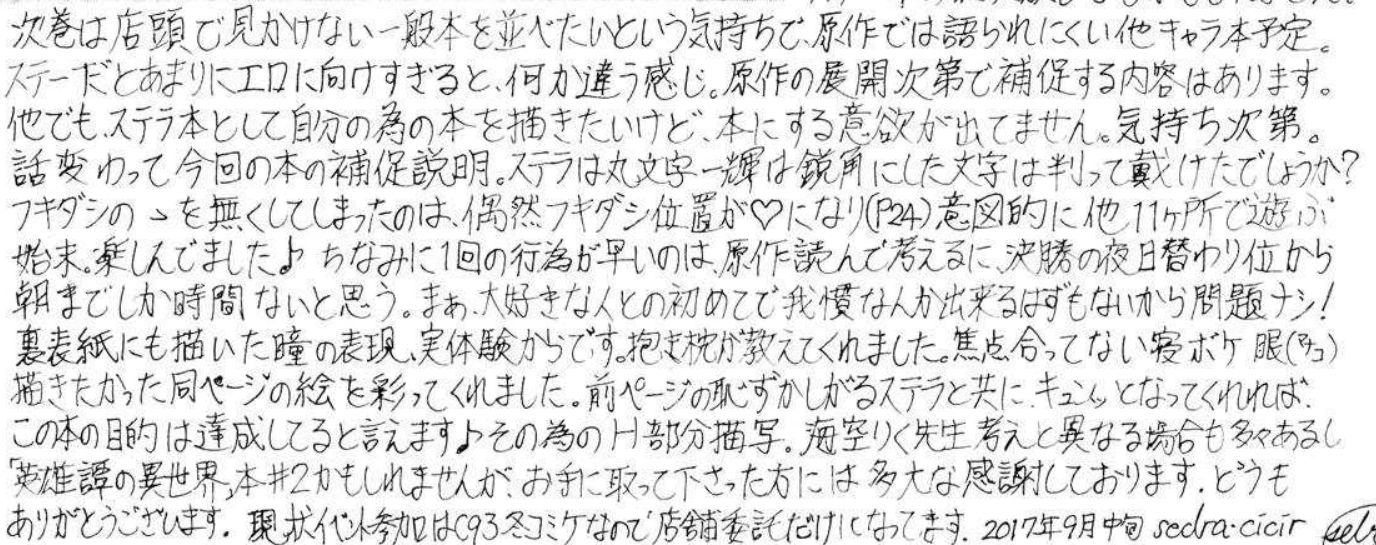 次巻は店頭で見かけない一般本を並べたいという気持ちで、原作では語られにくい他キャラ本予定。
ステーだとあまりにエロに向けすぎると、何か違う感じ。原作の展開次第で補促する内容はあります。
他でも、ステラ本として自分の為の本を描きたいけど、本にする意欲が出てません。気持ち次第。
話変わって今回の本の補促説明。ステラは丸文字一輝は鋭角にした文字は判って戴けたでしょうか?
フキダシの 、を無くしてしまったのは、偶然フキダシ位置が♡になり(P24)、意図的に他11ヶ所で遊ぶ
始末。楽しんでました♪ ちなみに1回の行為が早いのは、原作読んで考えるに、決勝の夜日替わり位から
朝までしか時間ないと思う。まぁ、大好きな人との初めてで我慣なんか出来るはずもないから問題ナシ!
裏表紙にも描いた瞳の表現、実体験からです。抱き枕が教えてくれました。焦点合ってない寝ボケ眼(マナコ)
描きたかった同ページの絵を彩ってくれました。前ページの恥ずかしがるステラと共に、キュンッとなってくれれば、
この本の目的は達成してると言えます♪その為のH部分描写。海空りく先生考えと異なる場合も多々あるし
「英雄譚の異世界」本#2かもしれませんが、お手に取って下さった方には多大な感謝しております。どうも
ありがとうございます。現状イベント参加はC93冬コミケなので店舗委託だけになってます。2017年9月中旬 sedra・cicir